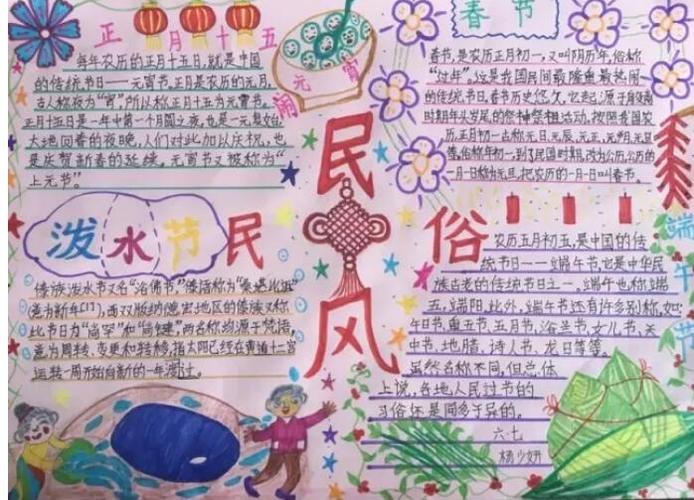 正月十五
每年农历的正月十五日,就是中国
的传统节日——元宵节。正月是农历的元月,
古人称夜为"宵",所以称正月十五为元宵节。
正月十五日是一年中第一个月圆之夜,也是一元复始,
大地回春的夜晚,人们对此加以庆祝,也
是庆贺新春的延续。元宵节又被称为"
上元节"。
闹元宵
春节
春节,是农历正月初一,又叫阴历年,俗称
"过年",这是我国民间最隆重最热闹
的传统节日。春节历史悠久,它起源于殷商
时期年头岁尾的祭神祭祖活动。按照我国农
历,正月初一古称元日、元辰、元正、元朔、元旦
等,俗称年初一,到了民国时期,改为公历,公历的
一月一日称为元旦,把农历的一月一日叫春节。
民
风
民俗
泼水节
傣族泼水节又名"浴佛节",傣语称为"桑堪比迈"
意为新年,西双版纳德宏地区的傣族又称
此节日为"尚罕"和"尚键",两名称均源于梵语,
意为周转、变更和转移,指太阳已经在黄道十二宫
运转一周开始向新的一年过渡。
端午节
农历五月初五,是中国的传
统节日——端午节,它是中华民
族古老的传统节日之一。端午也称端
五,端阳。此外,端午节还有许多别称,如:
午日节、重五节、五月节、浴兰节、女儿节、天
中节、地腊、诗人节、龙日等等。
虽然名称不同,但总体
上说,各地人民过节的
习俗还是同多于异的。
六·七
杨少妍